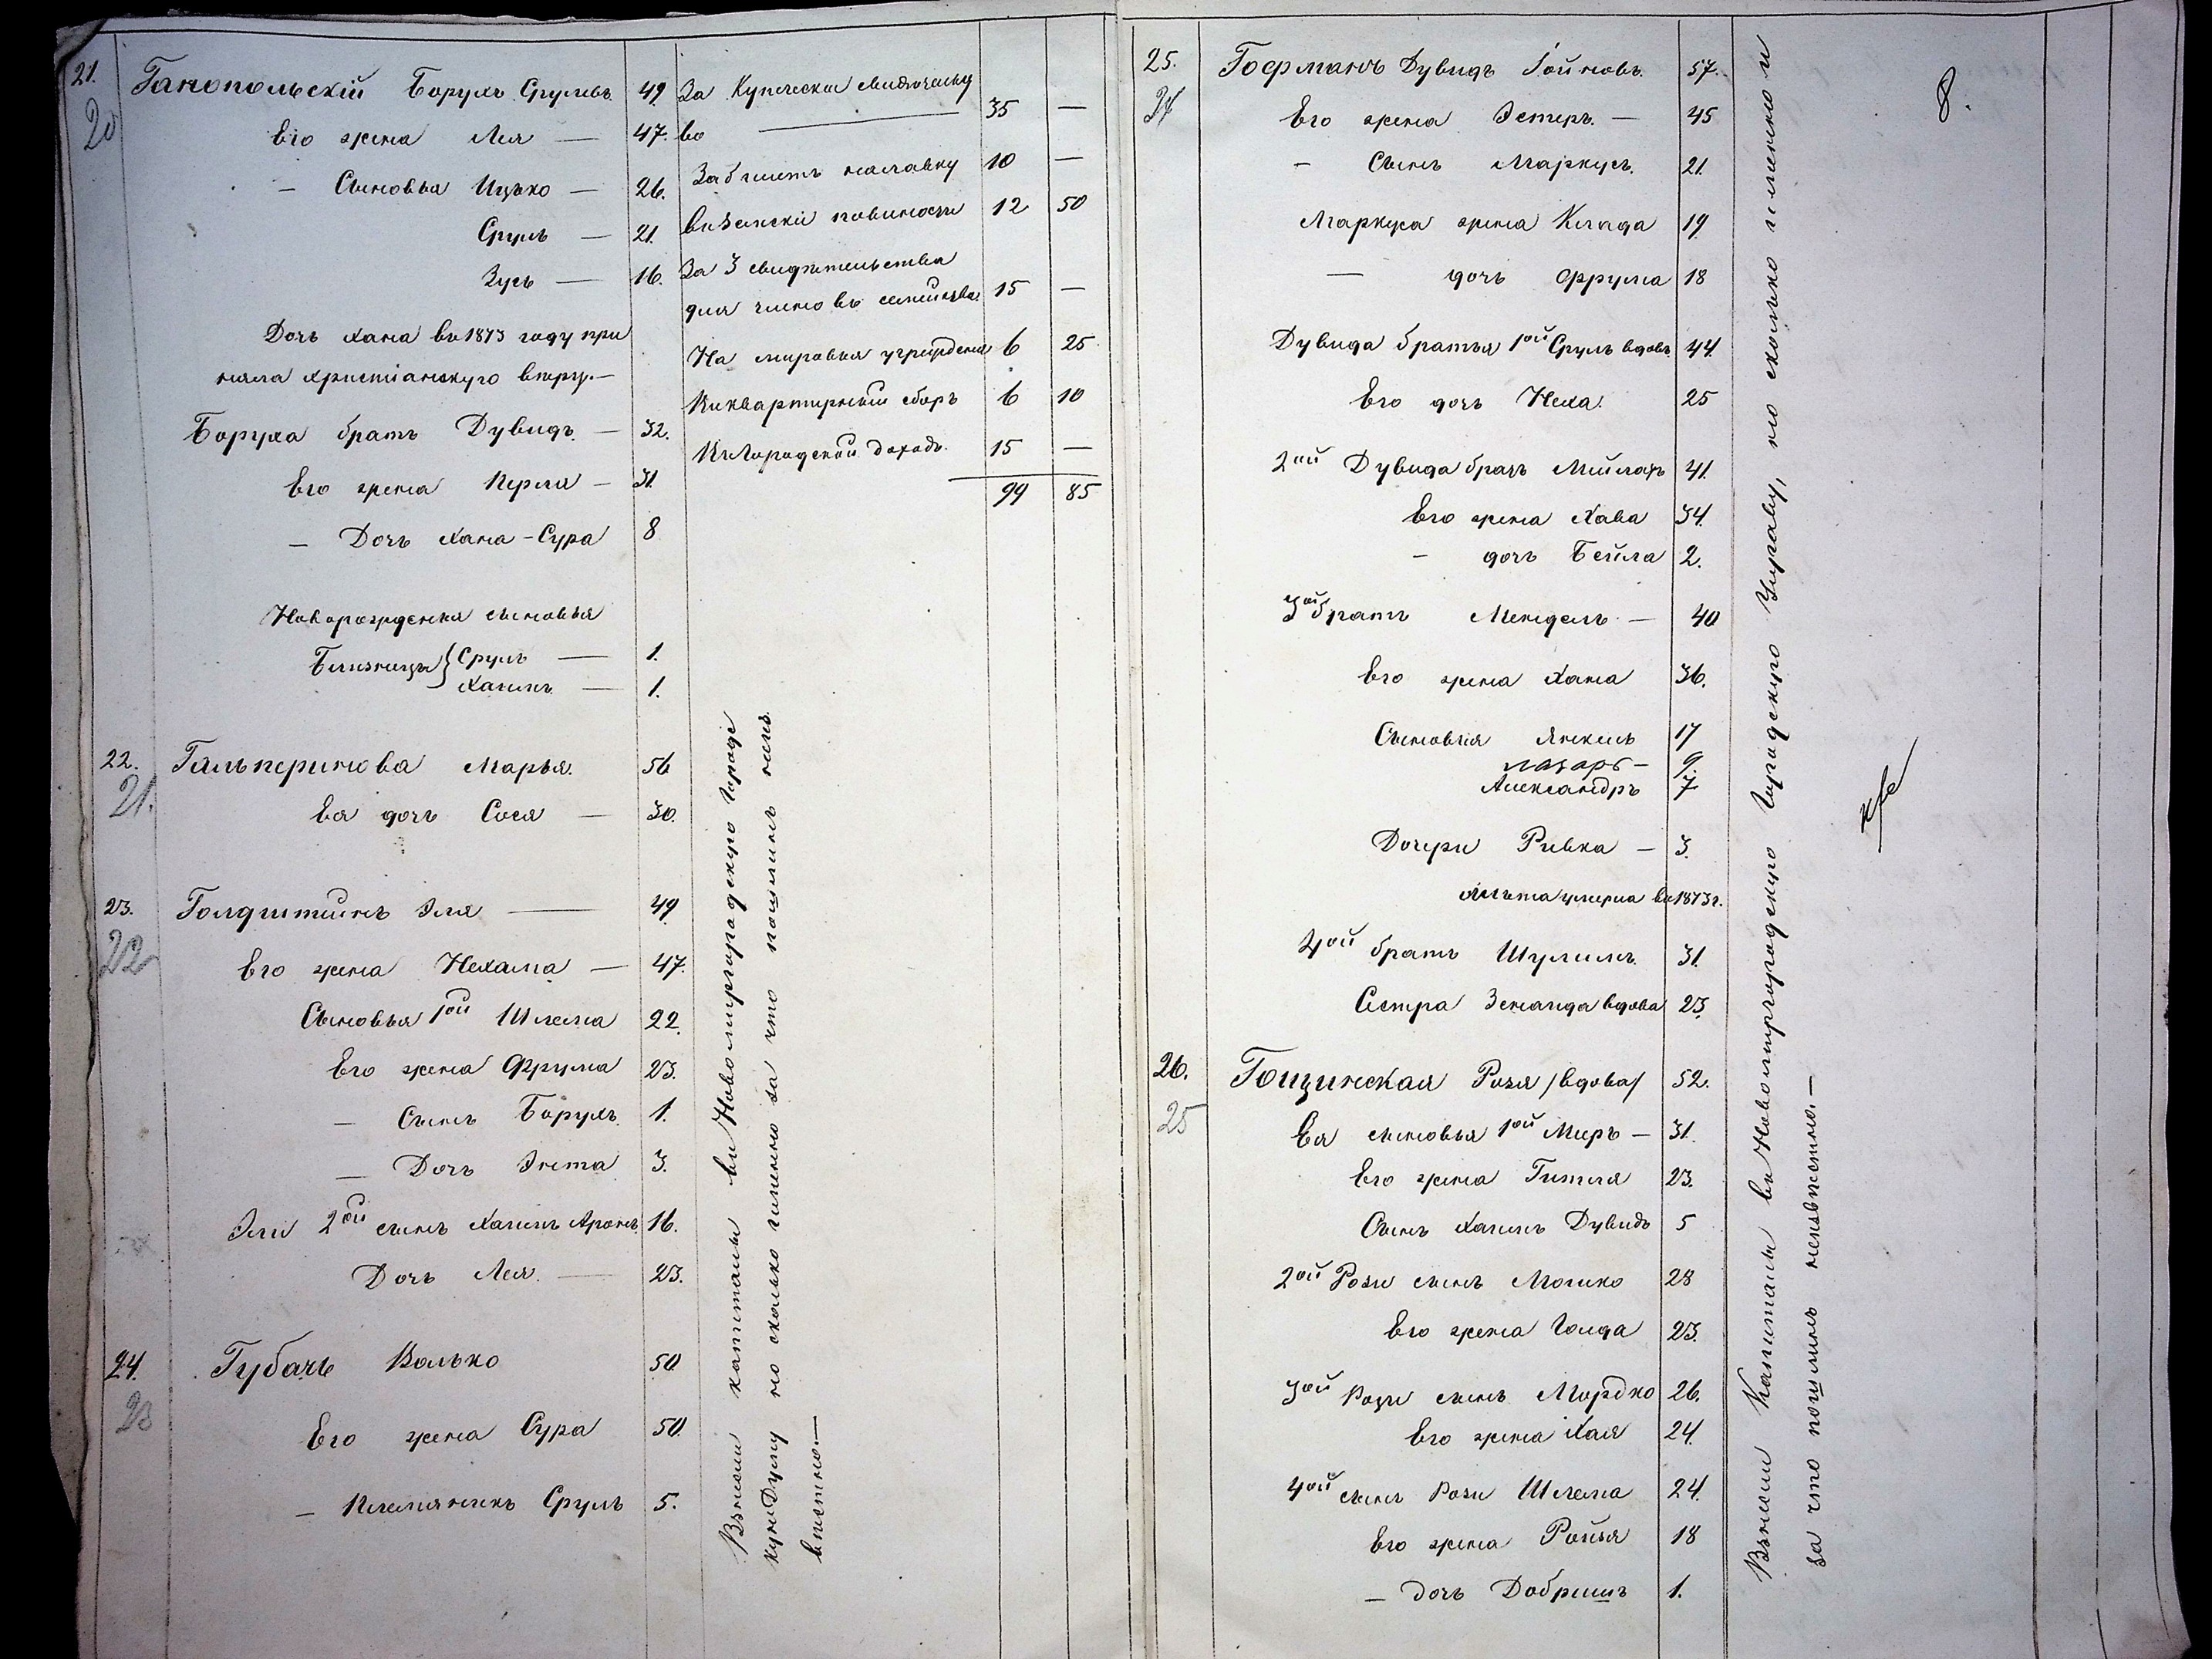 21. Ганопольскій Борухъ Срулевъ 49
20
Его жена Лея — 47.
— Сыновья Ицько — 26.
Сруль — 21.
Зусь — 16.
Дочь Хана въ 1873 году при
няла христіанскую вѣру. —
Боруха братъ Дувидъ — 32.
Его жена Перля — 31.
— Дочь Хана-Сура 8
Новорожденыя сыновья
Близнецы { Сруль — 1.
Хаимъ — 1.
За Купческое свидѣтельст
во — 35 —
За билетъ на лавку 10 —
Въ Земскіи повиности 12 50
За 3 свидѣтельства
для членовъ семейства 15 —
На мировыя учрежденія 6 25
На квартирный сборъ 6 10
На Городской доходъ 15 —
99 85
22. Гальперинова Марья. 56
21.
Ея дочь Сося — 30.
23. Голдштеинъ Эля — 49
22
Его жена Нехама — 47.
Сыновья 1ой Шлема 22.
Его жена Фрума 23.
— Сынъ Борухъ. 1.
— Дочь Энта 3.
Эли 2ой сынъ Хаимъ Аронъ 16.
Дочь Лея. — 23.
24. Губачъ Волько 50
23
Его жена Сура 50.
— Племяникъ Сруль 5.
Взнесли капиталы въ Новомиргородскую Городс
кую Думу но сколько именно за что пошлинъ неиз
вѣстно. —
8.
25. Гофманъ Дувидъ Іойновъ. 57.
24
Его жена Эстеръ. — 45
— Сынъ Маркусъ. 21.
Маркуса жена Клада 19
— дочь Фрума 18
Дувида братья 1ой Сруль вдовъ 44.
Его дочь Неха. 25
2ой Дувида братъ Мейлахъ 41.
Его жена Хава 34.
— дочь Бейла 2.
3ой братъ Мендель — 40
Его жена Хана 36.
Сыновья Янкель 17
Лазарь — 9.
Александръ 7
Дочери Ривка — 3.
умерла въ 1873 г.
4ой братъ Шулимъ. 31.
Сестра Зенаида вдова 23.
26. Гощинская Розя /вдова/ 52.
25
Ея сыновья 1ой Меръ — 31.
Его жена Гитля 23.
Сынъ Хаимъ Дувидъ 5
2ой Рози сынъ Мошко 28
Его жена Голда 23.
3ой Рози сынъ Мордко 26.
Его жена Хая 24.
4ой сынъ Рози Шлема 24.
Его жена Ройзя 18
— дочь Добришъ 1.
Взнесли Капиталы въ Новомиргородскую Городскую Управу, но сколько именно и
за что пошлинъ неизвѣстно. —